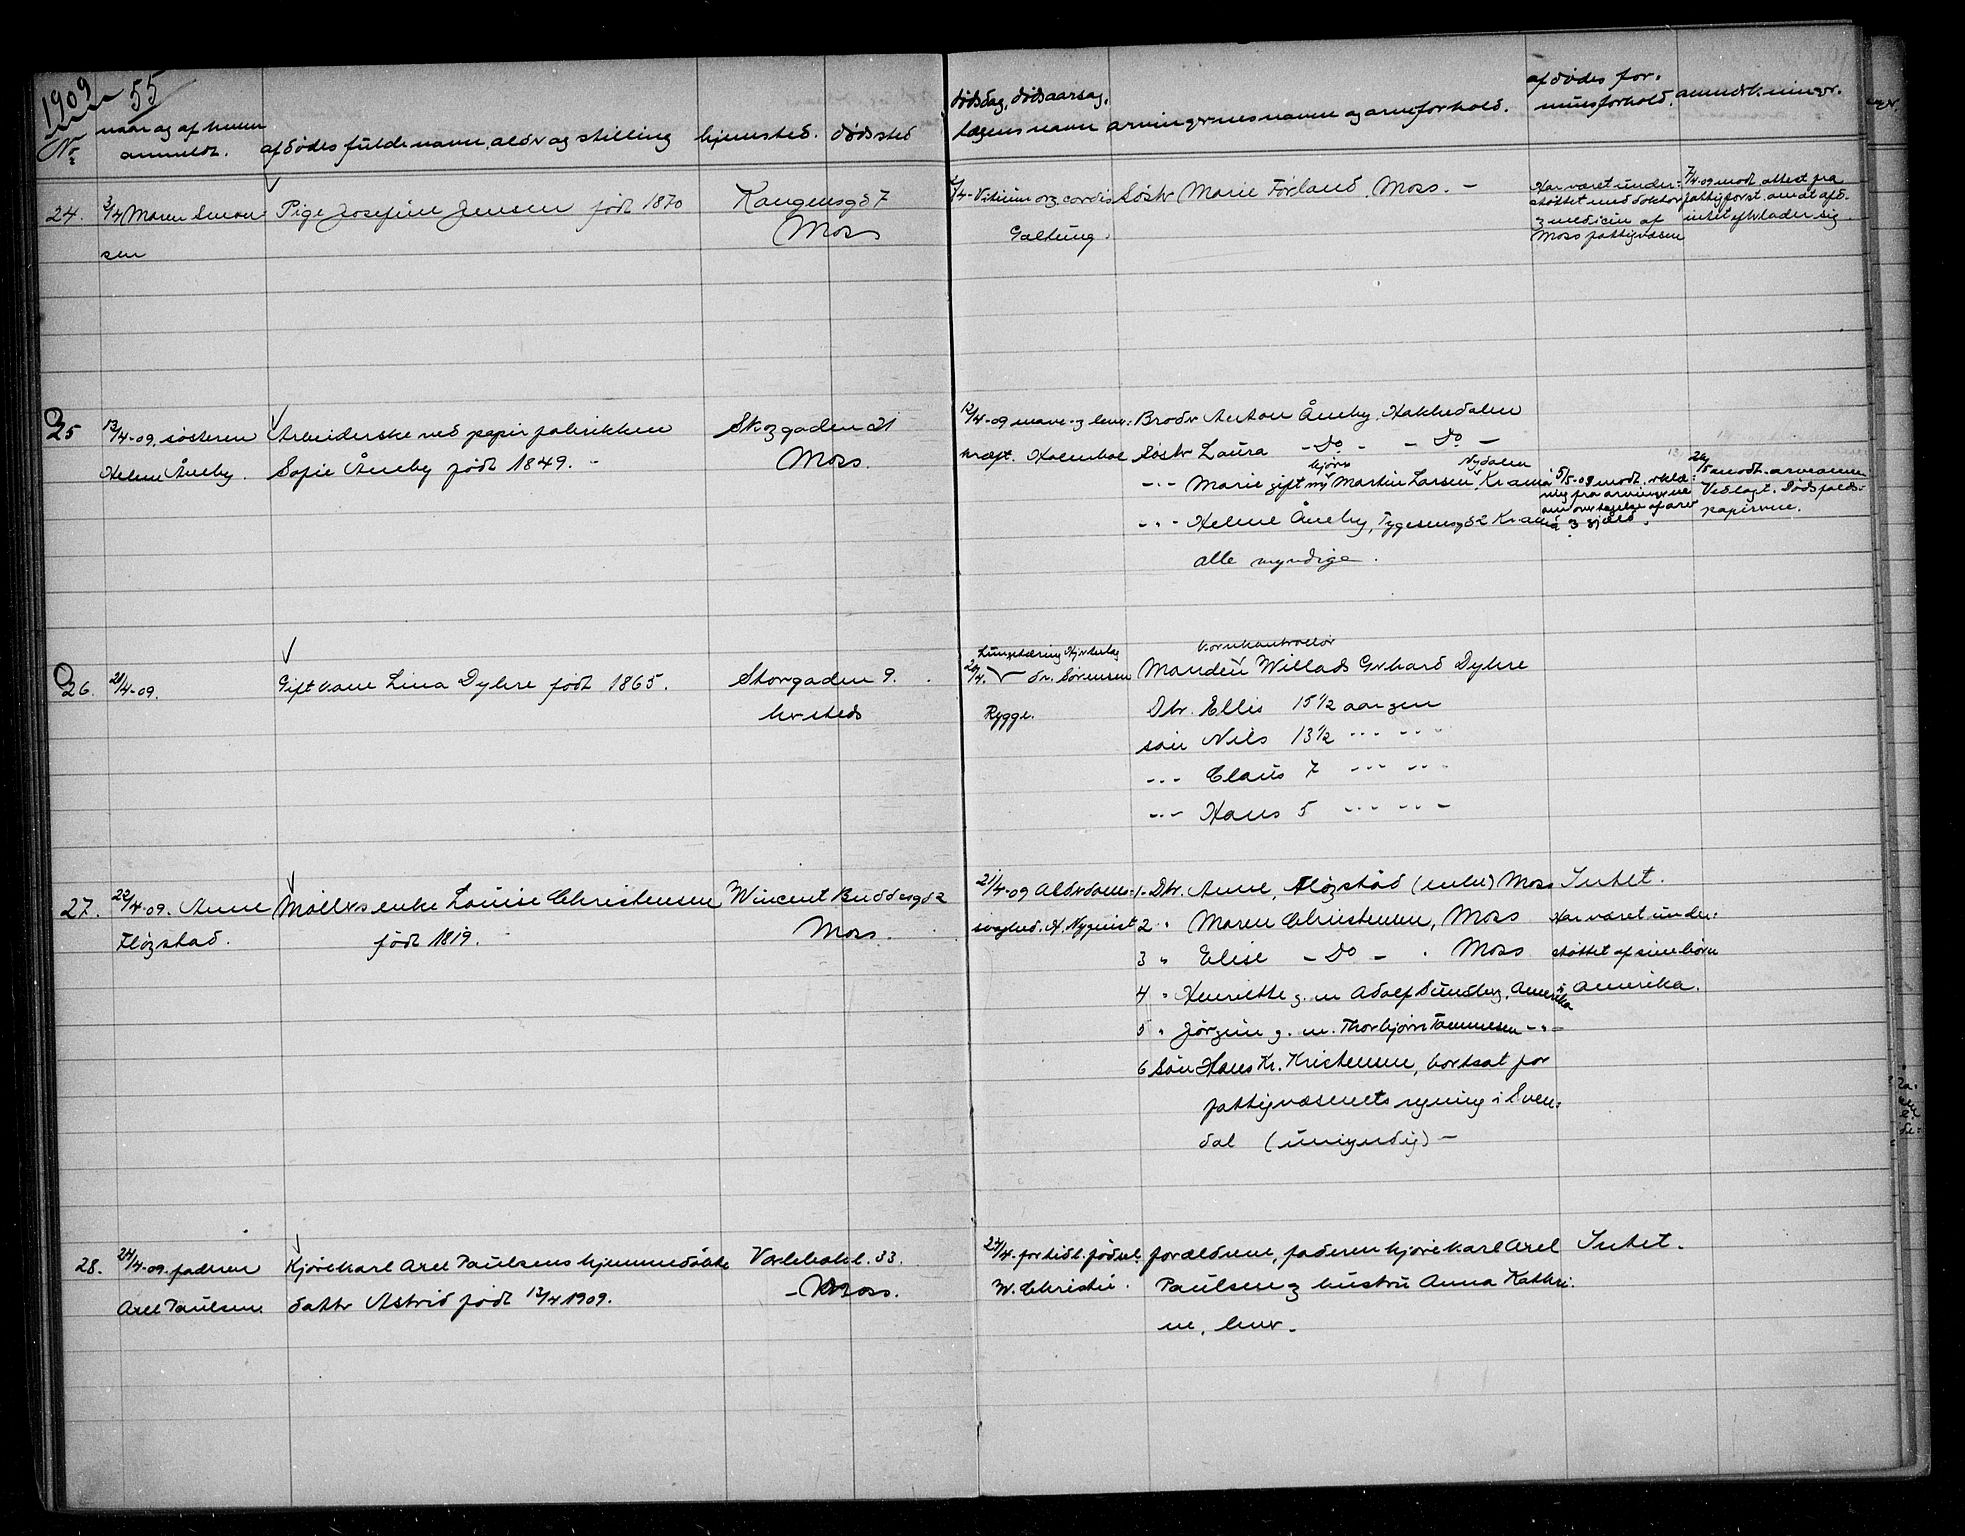 1909 55
No naar og af hvem anmeldt. afdødes fulde navn, alder og stilling hjemsted. dødssted dødsdag, dødsaarsag, lægens navn arvingernes navne og arveforhold. afdødes formuesforhold. anmerkninger.
24. 3/4 Maren Simon- Pige Josefine Jensen født 1870 Kongensgd 7
sen Moss
2/4 - Vitium org. cordis Søster Marie Førland, Moss. -
Galtung.
Har været under-
støttet med doktor
og medicin af
Moss fattigvæsen
7/4-09 modt. attest fra
fattigforst. om at afd.
intet efterlader sig.
25 13/4-09. søsteren Arbeiderske ved papirfabrikken Skoggaden 21
Helene Åneby. Sofie Åneby født 1849. - Moss.
12/4-09 mave- og lever- Broder Anton Åneby, Hakkedalen
kræft. Holmboe Søster Laura - Do - - Do -
Bjørn Nydalen
-"- Marie gift m/ Martin Larsen, Kr.ania
-"- Helene Åneby, Tygesensgd 2 Kr.ania
alle myndige.
5/5-09 modt. erklæ-
ring fra arvingerne
om overtagelse af arv
og gjæld.
Vedlagt. Dødsfalds-
papirerne.
26. 21/4-09. Gift kone Lina Dyhre født 1865. Storgaden 9.
hersteds
Lungetæring Hjerteslag
20/4. Dr. Sørensen
Rygge.
kornkontrollør
Manden Willads Gerhard Dyhre
Dtr. Ellis 15 1/2 aar gm
søn Nils 13 1/2 -"- -"-
-"- Claus 7 -"- -"-
-"- Hans 5 -"- -"-
27. 22/4-09. Anne Møllers enke Louise Christensen Wincent Buddesgd 2
Fløgstad. født 1819. Moss.
21/4-09 Alderdoms- 1 - Dtr. Anne, Fløgstad (enke) Moss Intet.
svaghed. A. Nyquist 2 " Maren Christensen, Moss Har været under-
3 " Elise - Do - . Moss støttet af sine børn
4 " Henriette g. m Adolf Sundby, Amerika i Amerika.
5 " Jørgine g. m. Thorbjørn Tønnesen -"-
6 Søn Hans Kr. Kristensen, bortsat for
fattigvæsenets regning i Sven-
dal (umyndig) -
28. 24/4-09. faderen Kjørekarl Axel Paulsens hjemmedøbte Varlebakk. 33.
Axel Paulsen datter Astrid født 13/4 1909. - Moss.
24/4. fortidl. fødsel. forældrene, faderen kjørekarl Axel Intet.
W. Christie. Paulsen og hustru Anna Kathri-
ne, lever.